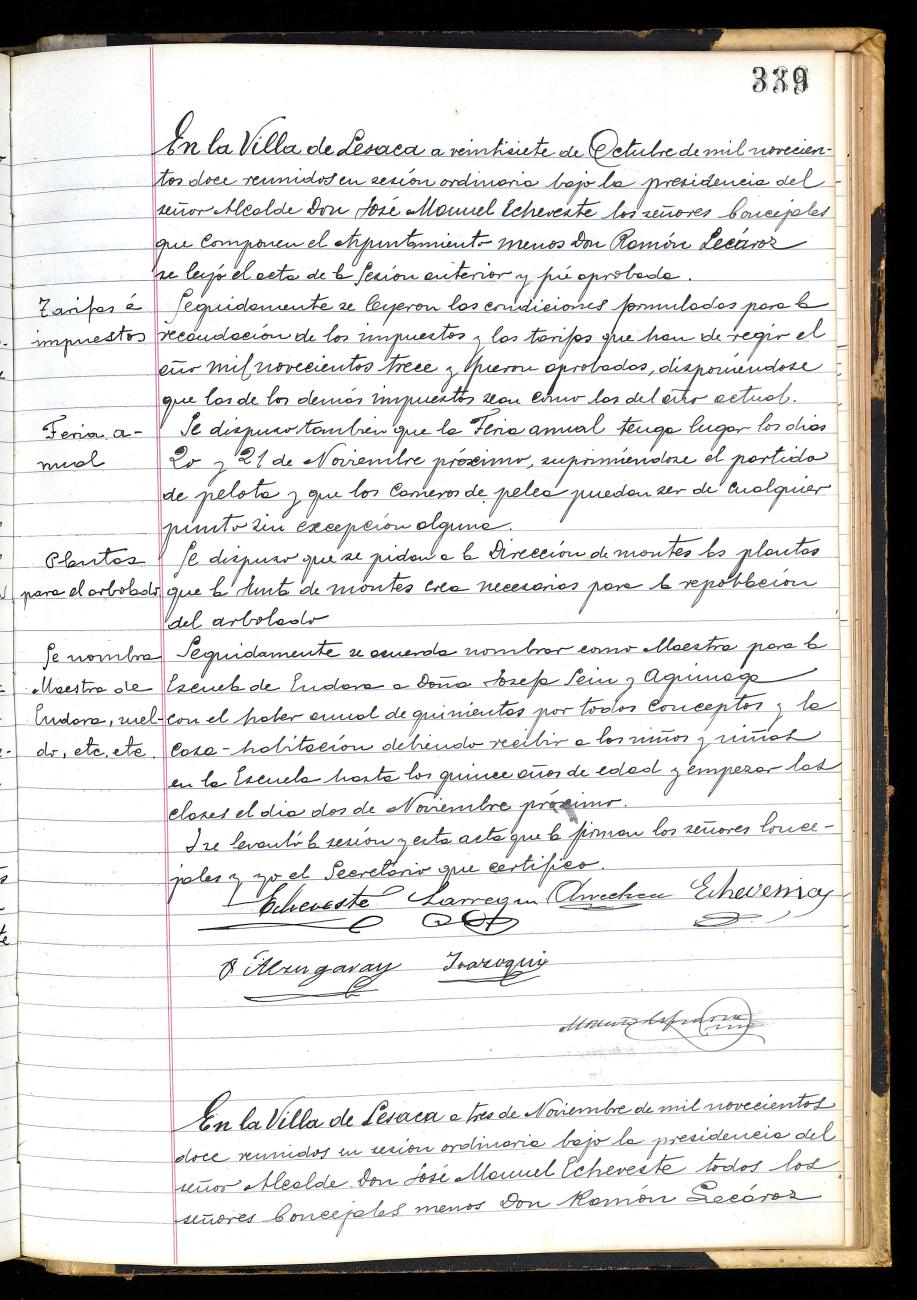 339
En la Villa de Lesaca a veintisiete de Octubre de mil novecien-
tos doce reunidos en sesión ordinaria bajo la presidencia del
señor Alcalde Don José Manuel Echeveste los señores Concejales
que componen el Ayuntamiento menos Don Ramón Lecároz
se leyó el acta de la Sesión anterior y fué aprobada.
Tarifas é
impuestos
Seguidamente se leyeron las condiciones formuladas para la
recaudación de los impuestos y las tarifas que han de regir el
año mil novecientos trece y fueron aprobadas, disponiéndose
que las de los demás impuestos sean como las del año actual.
Feria a-
nual
Se dispuso tambien que la Feria anual tenga lugar los dias
20 y 21 de Noviembre próximo, suprimiéndose el partido
de pelota y que los Carneros de pelea puedan ser de cualquier
punto sin excepción alguna.
Plantas
para el arbolado
Se dispuso que se pidan a la Dirección de montes las plantas
que la Junta de montes crea necesarias para la repoblación
del arbolado
Se nombra
Maestra de
Endara, suel-
do, etc. etc.
Seguidamente se acuerda nombrar como Maestra para la
Escuela de Endara a Doña Josefa Sein y Aguinaga
con el haber anual de quinientas por todos conceptos y la
casa-habitación debiendo recibir a los niños y niñas
en la Escuela hasta los quince años de edad y empezar las
clases el dia dos de Noviembre próximo.
I se levantó la sesión y esta acta que la firman los señores Conce-
jales y yo el Secretario que certifico.
Echeveste Larregui Echeverria
Alzugaray Irazoqui
En la Villa de Lesaca a tres de Noviembre de mil novecientos
doce reunidos en sesión ordinaria bajo la presidencia del
señor Alcalde Don José Manuel Echeveste todos los
señores Concejales menos Don Ramón Lecároz